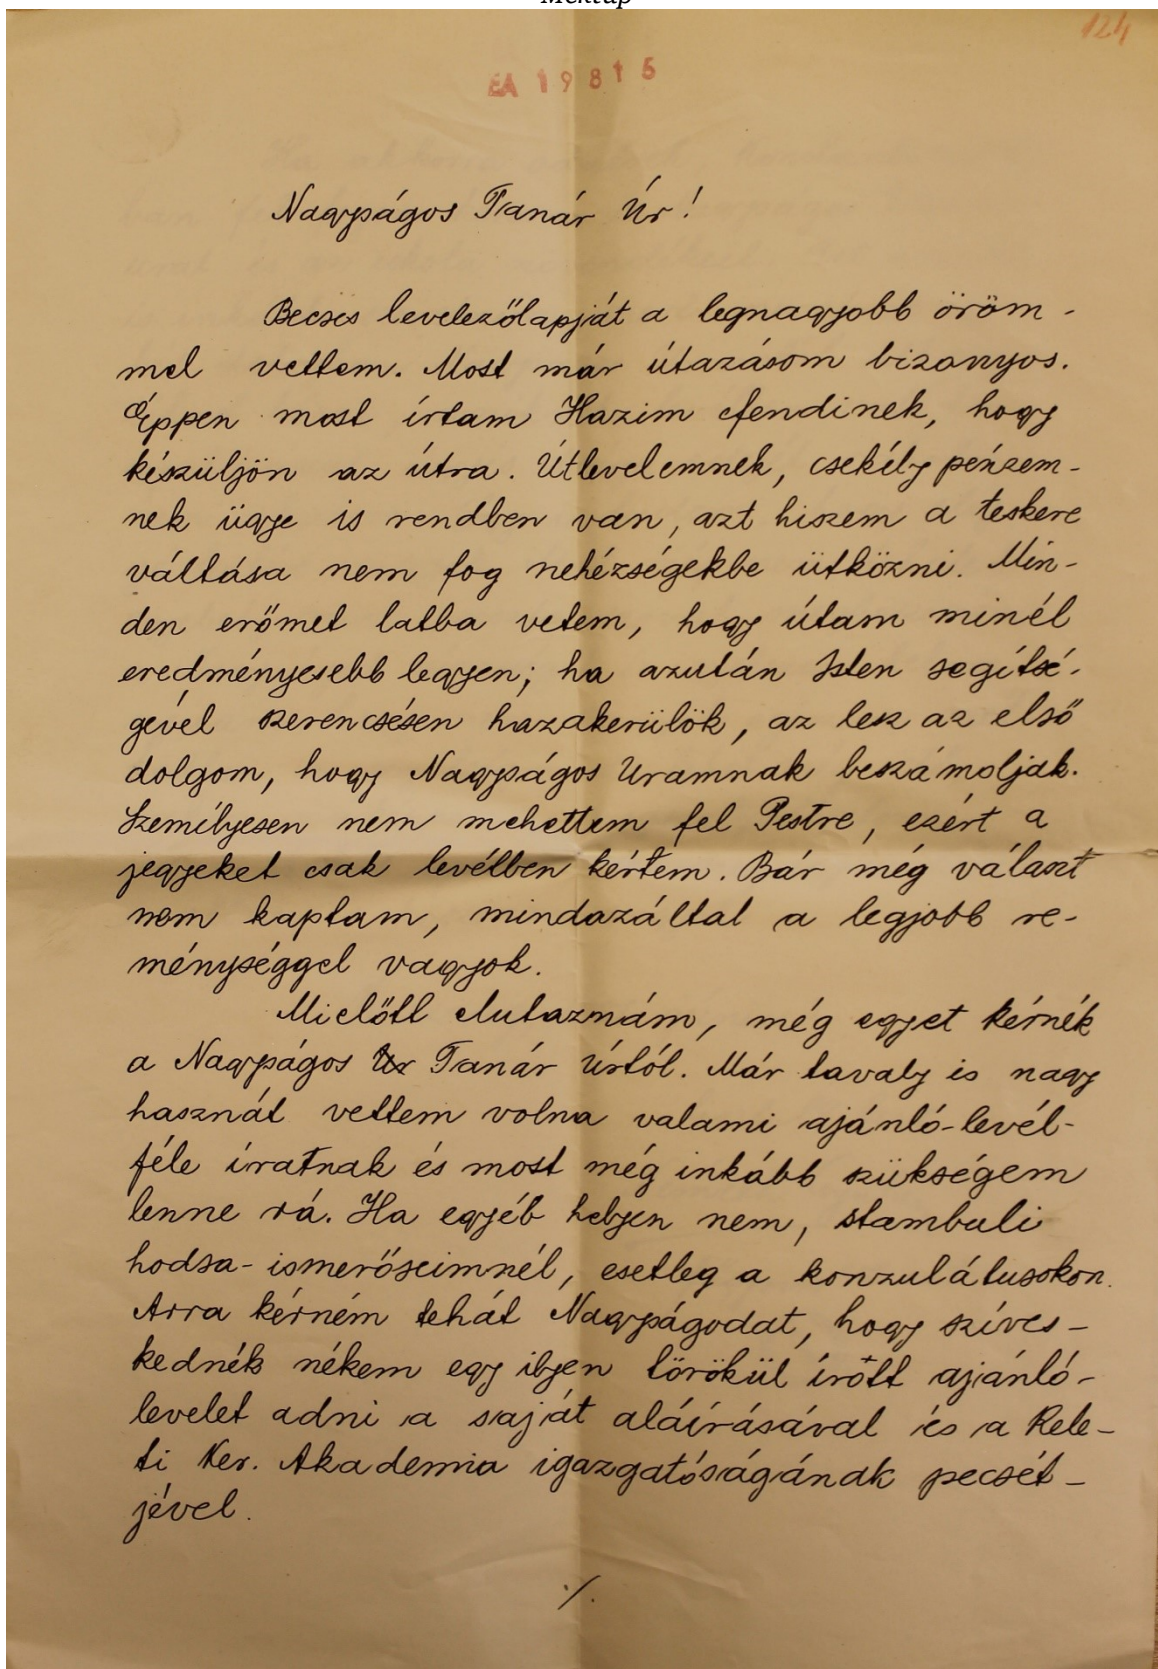 Mektup
124
EA 19815
Nagyságos Tanár Úr!
Becses levelezőlapját a legnagyobb öröm-
mel vettem. Most már útazásom bizonyos.
Éppen most írtam Hazim efendinek, hogy
készüljön az útra. Útlevelemnek, csekély pénzem-
nek ügye is rendben van, azt hiszem a teskere
váltása nem fog nehézségekbe ütközni. Min-
den erőmet latba vetem, hogy útam minél
eredményesebb legyen; ha azután Isten segítsé-
gével szerencsésen hazakerülök, az lesz az első
dolgom, hogy Nagyságos Uramnak beszámoljak.
Személyesen nem mehettem fel Pestre, ezért a
jegyeket csak levélben kértem. Bár még választ
nem kaptam, mindazáltal a legjobb re-
ménységgel vagyok.
Mielőtt elutaznám, még egyet kérnék
a Nagyságos Ur Tanár Úrtól. Már tavaly is nagy
hasznát vettem volna valami ajánló-levél-
féle íratnak és most még inkább szükségem
lenne rá. Ha egyéb helyen nem, stambuli
hodsa-ismerőseimnél, esetleg a konzulátusokon.
Arra kérném tehát Nagyságodat, hogy szíves-
kednék nékem egy ilyen törökül írott ajánló-
levelet adni a saját aláírásával és a Kele-
ti Ker. Akademia igazgatóságának pecsét-
jével.
./.